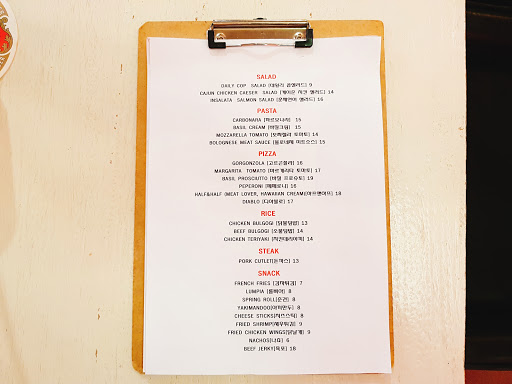 SALAD
DAILY COP SALAD [데일리 콥샐러드] 9
CAJUN CHICKEN CAESER SALAD [케이준 치킨 샐러드] 14
INSALATA SALMON SALAD [훈제연어 샐러드] 16
PASTA
CARBONARA [까르보나라] 15
BASIL CREAM [바질크림] 15
MOZZARELLA TOMATO [모짜렐라 토마토] 14
BOLOGNESE MEAT SAUCE [볼로네제 미트소스] 15
PIZZA
GORGONZOLA [고르곤졸라] 16
MARGARITA TOMATO [마르게리타 토마토] 17
BASIL PROSCIUTTO [바질 프로슈토] 19
PEPERONI [페페로니] 16
HALF&HALF (MEAT LOVER, HAWAIIAN CREAM)[하프앤하프] 18
DIABLO [디아블로] 17
RICE
CHICKEN BULGOGI [닭불덮밥] 13
BEEF BULGOGI [소불덮밥] 14
CHICKEN TERIYAKI [치킨데리야끼] 14
STEAK
PORK CUTLET[돈까스] 13
SNACK
FRENCH FRIES [감자튀김] 7
LUMPIA [룸삐아] 8
SPRING ROLL[춘권] 8
YAKIMANDOO[야끼만두] 8
CHEESE STICKS[치즈스틱] 8
FRIED SHRIMP[새우튀김] 9
FRIED CHICKEN WINGS[닭날개] 9
NACHOS[나쵸] 6
BEEF JERKY[육포] 18